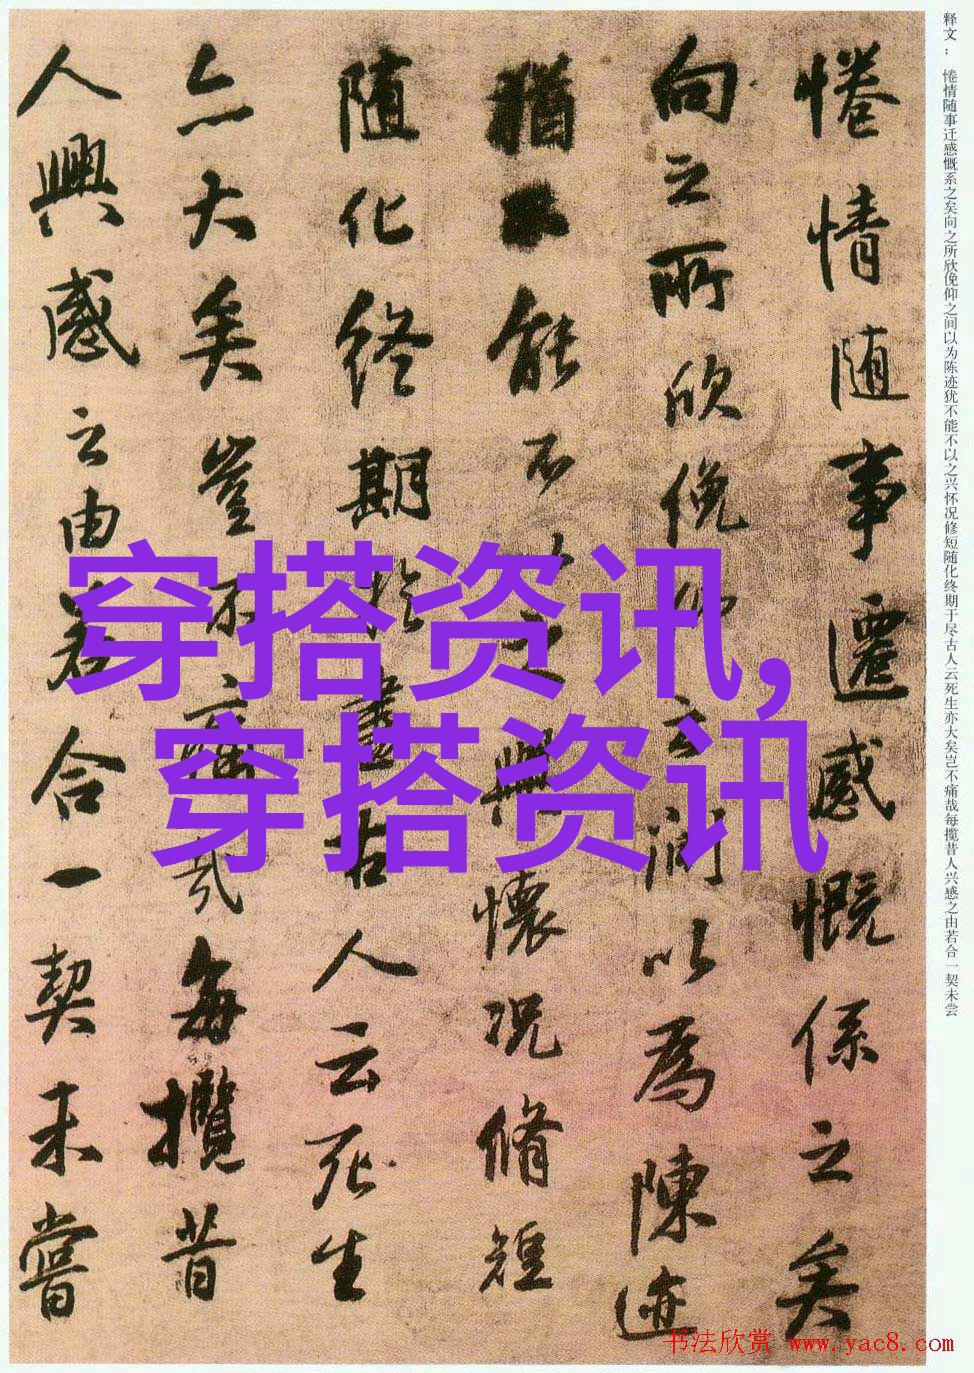 惓情随事遷感慨係之矣
向之所欣俛仰之间以為陳迹
猶不能不以之興懷况脩短
随化终期於盡古人云死生
亦大矣豈不痛哉每攬昔
人興感之由若合一契未嘗
释文：惓情随事迁感慨系之矣向之所欣俛仰之间以为陈迹犹不能不以之兴怀况修短随化终期于尽古人云死生亦大矣岂不痛哉每揽昔人兴感之由若合一契未尝
穿搭资讯,
穿搭资讯
书法欣赏 www.yac8.com